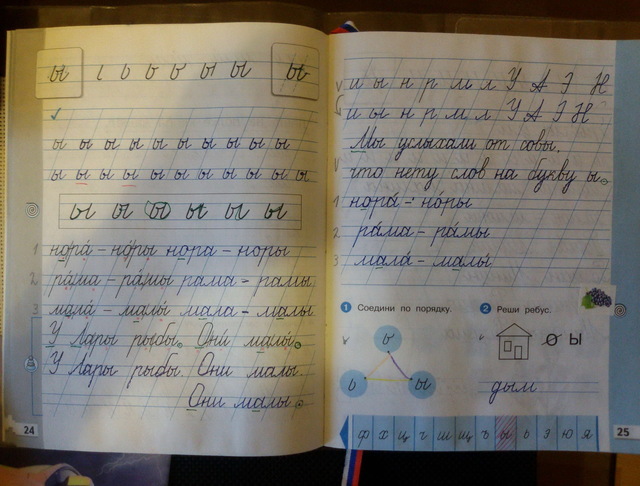 ы ı ь ь ъ ы ы ы
ы ы ы ы ы ы ы ы ы ы
ы ы ы ы ы ы ы ы ы ы ы ы
ы ы ы ы ы ы
1 нора́ – но́ры нора – норы
2 ра́ма – ра́мы рама – рамы
3 мала́ – малы́ мала – малы
У Лары рыбы. Они малы.
У Лары рыбы. Они малы.
Они малы.
24
и ы н р м л У А Э Н
и ы н р м л У А Э Н
Мы услыхали от совы,
что нету слов на букву ы.
1 нора́ - но́ры
2 ра́ма – ра́мы
3 мала́ – малы́
1 Соедини по порядку.
ъ
ь ы
2 Реши ребус.
о ы
дым
ф х ц ч ш щ ъ ы ь э ю я
25